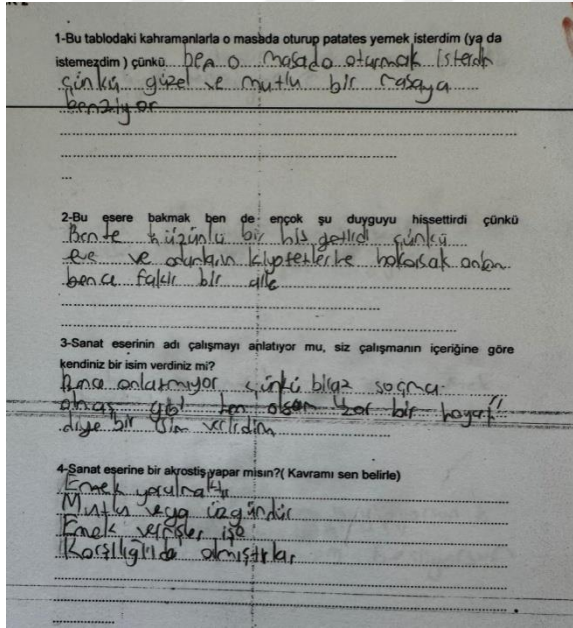 1-Bu tablodaki kahramanlarla o masada oturup patates yemek isterdim (ya da
istemezdim ) çünkü ben o masada oturmak isterdim
çünkü güzel ve mutlu bir masaya
benziyor
2-Bu esere bakmak ben de ençok şu duyguyu hissettirdi çünkü
Bente hüzünlü bir his getirdi çünkü
eve ve onların kıyafetlerine bakarsak onlar
bence fakir bir aile
3-Sanat eserinin adı çalışmayı anlatıyor mu, siz çalışmanın içeriğine göre
kendiniz bir isim verdiniz mi?
Bence anlatmıyor çünkü biraz saçma
olmuş gibi ben olsam zor bir hayat"
diye bir isim verirdim
4-Sanat eserine bir akrostiş yapar mısın?( Kavramı sen belirle)
Emek yorulmaktır
Mutlu veya üzgündür
Emek vermişler işe
Karşılığıda almıştırlar